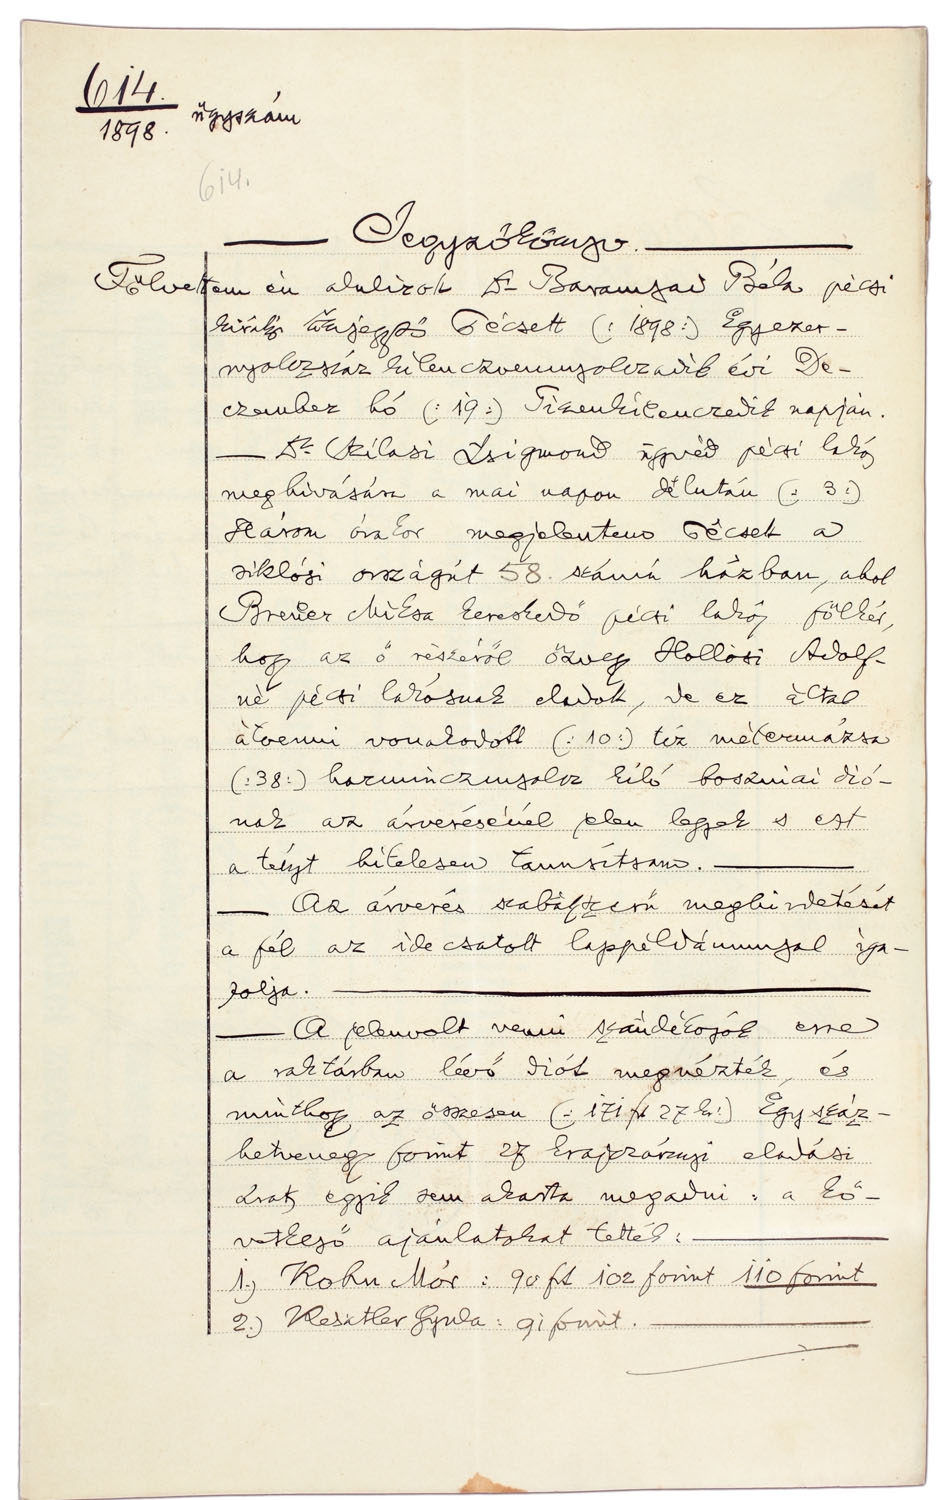 614.
1898. ügyszám
614.
Jegyzőkönyv.
Fölvettem én alulirott Dr Baranyai Béla pécsi
királyi közjegyző Pécsett (: 1898 :) Egyezer-
nyolczszáz kilenczvennyolczadik évi De-
czember hó (: 19 :) Tizenkilenczedik napján.
Dr Szilasi Zsigmond ügyvéd pécsi lakós
meghivására a mai napon délután (: 3 :)
Három órakor megjelentem Pécsett a
siklósi országút 58. számú házban, ahol
Breuer Miksa kereskedő pécsi lakós fölkér,
hogy az ő részéről özvegy Hollósi Adolf-
né pécsi lakósnak eladott, de ez által
átvenni vonakodott (: 10 :) tíz métermázsa
(: 38 :) harmincznyolcz kiló boszniai dió-
nak az árverésénél jelen legyek s ezt
a tényt hitelesen tanusítsam.
Az árverés szabályszerű meghirdetését
a fél az ide csatolt lappéldánnyal iga-
zolja.
A jelenvolt venni szándékozók erre
a raktárban lévő diót megnézték, és
minthogy az összesen (: 171 ft 27 kr :) Egyszáz-
hetvenegy forint 27 krajczárnyi eladási
árat egyik sem akarta megadni : a kö-
vetkező ajánlatokat tették :
1.) Kohn Mór : 90 ft 102 forint 110 forint
2.) Kesztler Gyula : 91 forint.